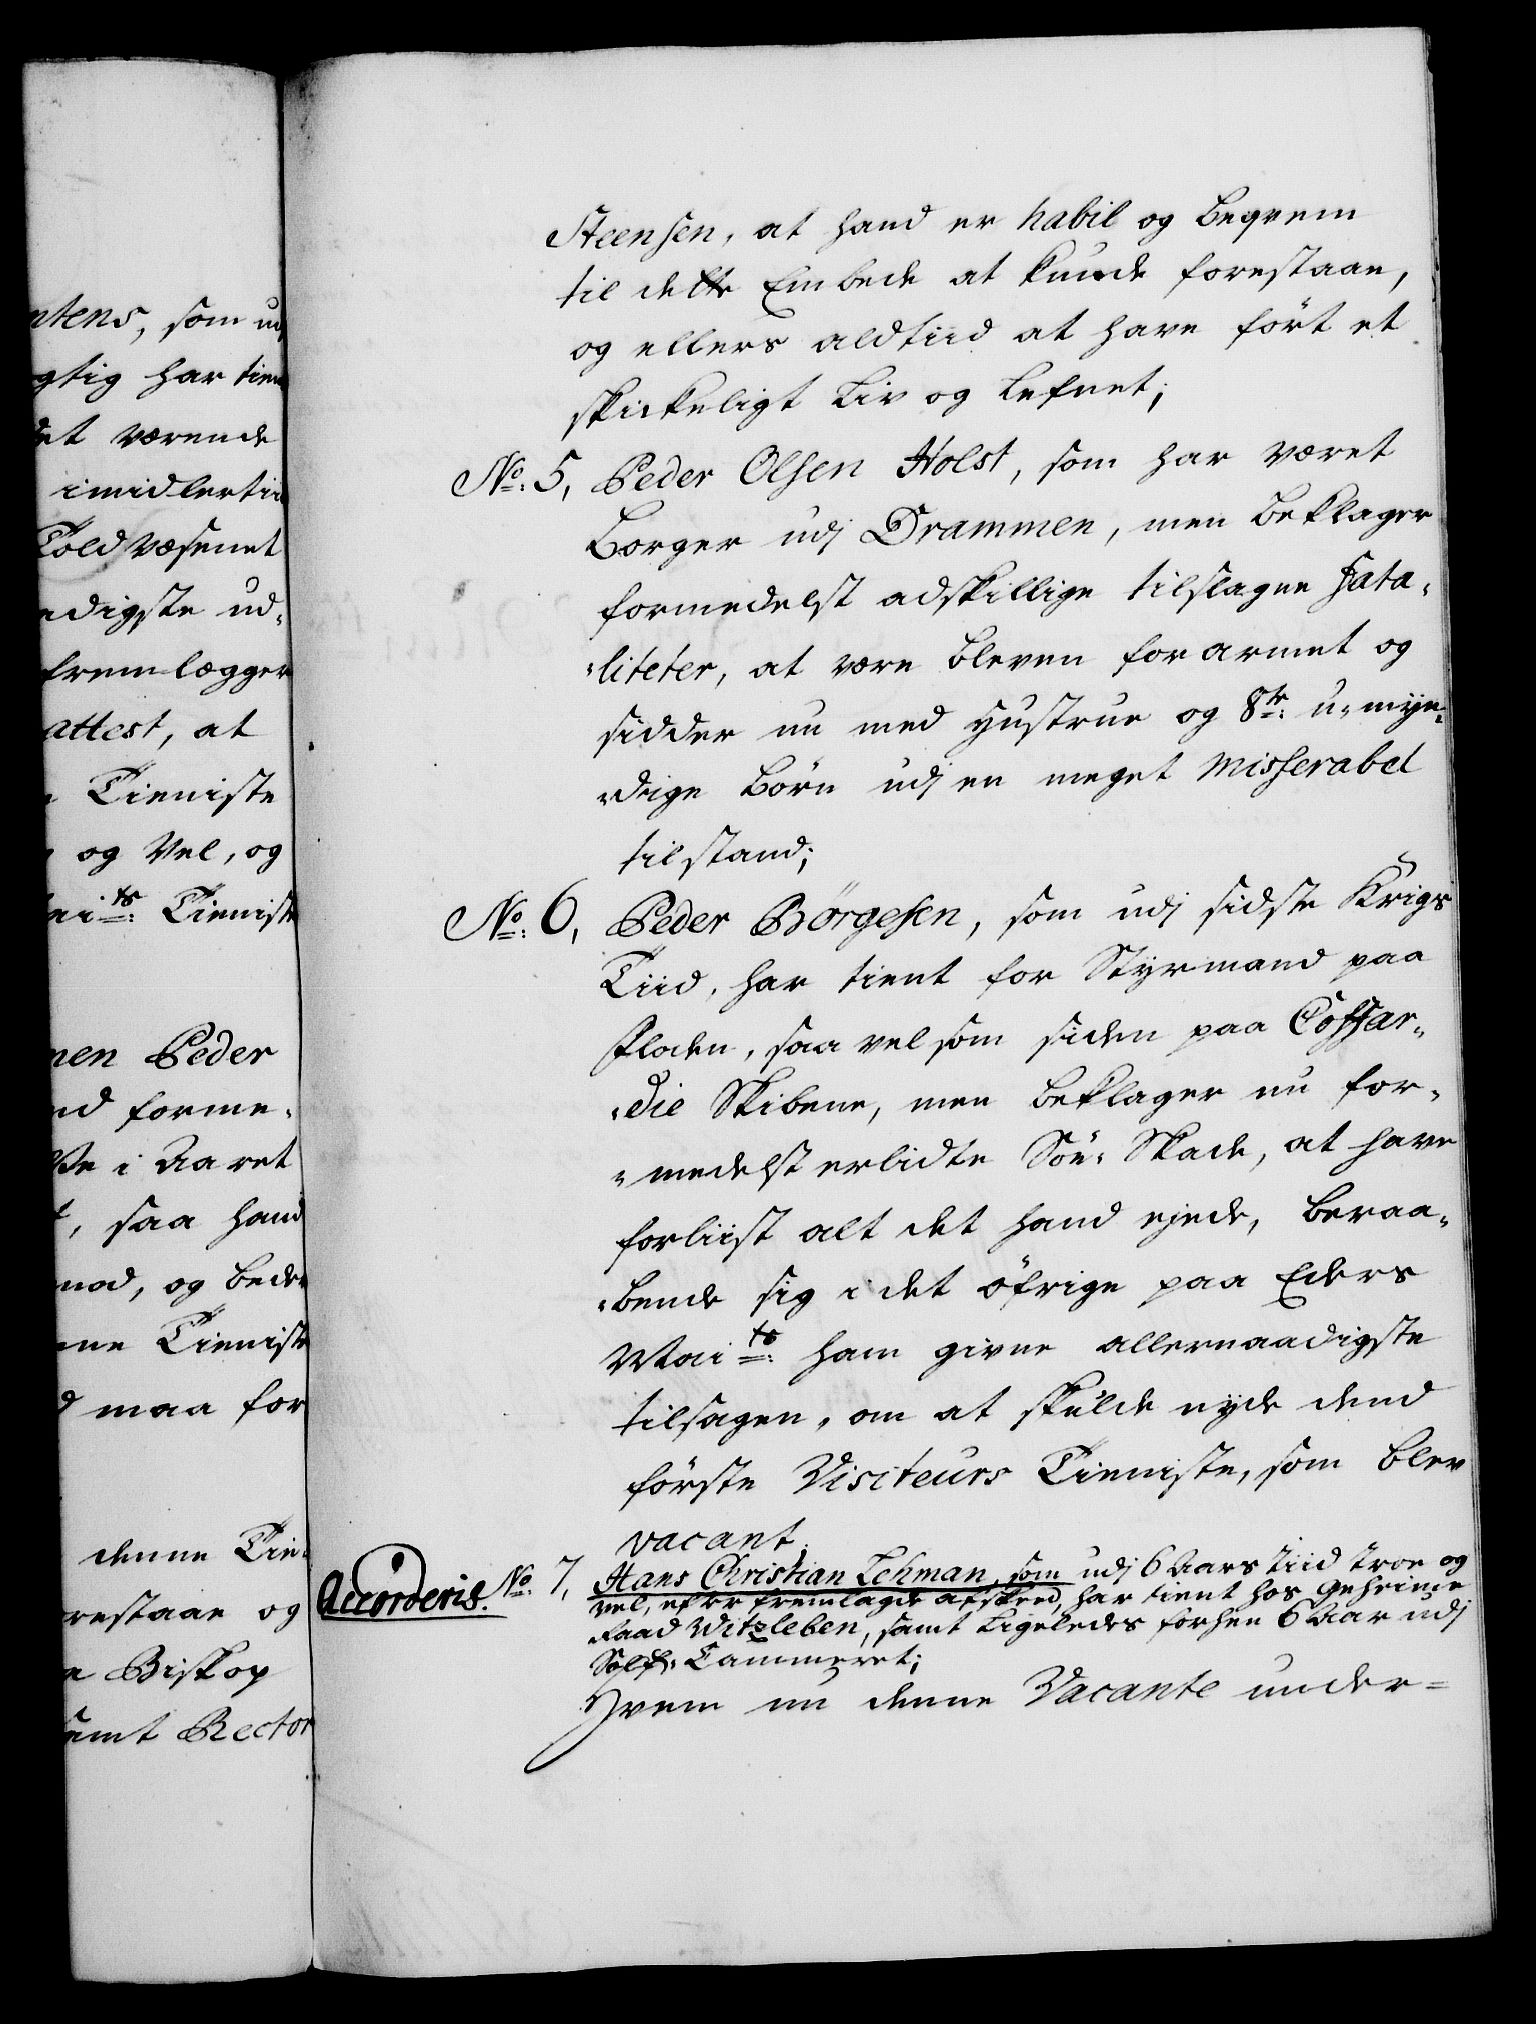 ntens, som ud
gtig har tien
det værende
imidlertii
Told væsenet
adigste ud-
fremlægger
attest, at
Tieniste
og Vel, og
ai ts: Tienist
nen Peder
nd forme-
i Aaret
, saa hand
nad, og beder
ne Tieniste
maa for
denne Tie-
restaae og
Biskop
samt Rector
Steensen, at hand er habil og beqvem
til dette Embede at kunde forestaae,
og ellers aldtiid at have ført et
skickeligt Liv og Lefnet;
No: 5, Peder Olsen Holst, som har været
Borger udj Drammen, men beklager
formedelst adskillige tilslagne Fata-
-liteter, at være bleven forarmet og
sidder nu med Hustrue og 8te: u-myn-
-dige Børn udj en meget misserabel
tilstand;
No: 6, Peder Börgesen, som udj sidste Krigs
Tiid, har tient for Styrmand paa
Floden, saavelsom siden paa Coffar-
-die Skibene, men beklager nu for-
-medelst erlidte Söe-Skade, at have
forliist alt det hand ejede, beraa-
-bende sig i det øfrige paa Eders
Mai ts: ham givne allernaadigste
tilsagen, om at skulde nyde dend
förste Visiteurs Tieniste, som blev
vacant;
Accorderis. No: 7, Hans Christian Lehman, som udj 6 Aars Tiid troe og
vel, efter fremlagde afskeed, har tient hos Geheime
Raad Witzleben, samt Ligeledes forhen 6 Aar udj
Sölf-Cammeret;
Hvem nu denne Vacante under-